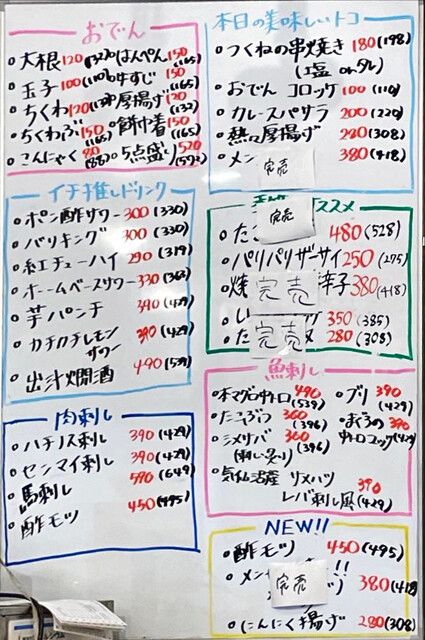 おでん
大根120(132) はんぺん150(165)
玉子100(110) 牛すじ150(165)
ちくわ120(132) 厚揚げ120(132)
ちくわぶ150(165) 餅巾着150(165)
こんにゃく80(88) 5点盛り520(572)
イチ推しドリンク
ポン酢サワー300(330)
バリキング300(330)
紅チューハイ290(319)
ホームベースサワー330(363)
芋パンチ390(429)
カチカチレモンサワー390(429)
出汁燗酒490(539)
肉刺し
ハチノス刺し390(429)
センマイ刺し390(429)
馬刺し590(649)
酢モツ450(495)
本日の美味しいトコ
つくねの串焼き180(198)
(塩orタレ)
おでんコロッケ100(110)
カレースパサラ200(220)
熱々厚揚げ280(308)
メン 完売 380(418)
完売 ススメ
たこ 480(528)
パリパリザーサイ250(275)
焼 完売 辛子380(418)
い 350(385)
た 完売 280(308)
魚刺し
本マグロ中トロ490(539)
ブリ390(429)
たこぶつ360(396)
まぐろの中トロコロッケ(429)
シメサバ360(396)
(炙り)
気仙沼産サメハツ
レバ刺し風390(429)
NEW!!
酢モツ450(495)
メン 完売 !! 380(418)
にんにく揚げ280(308)